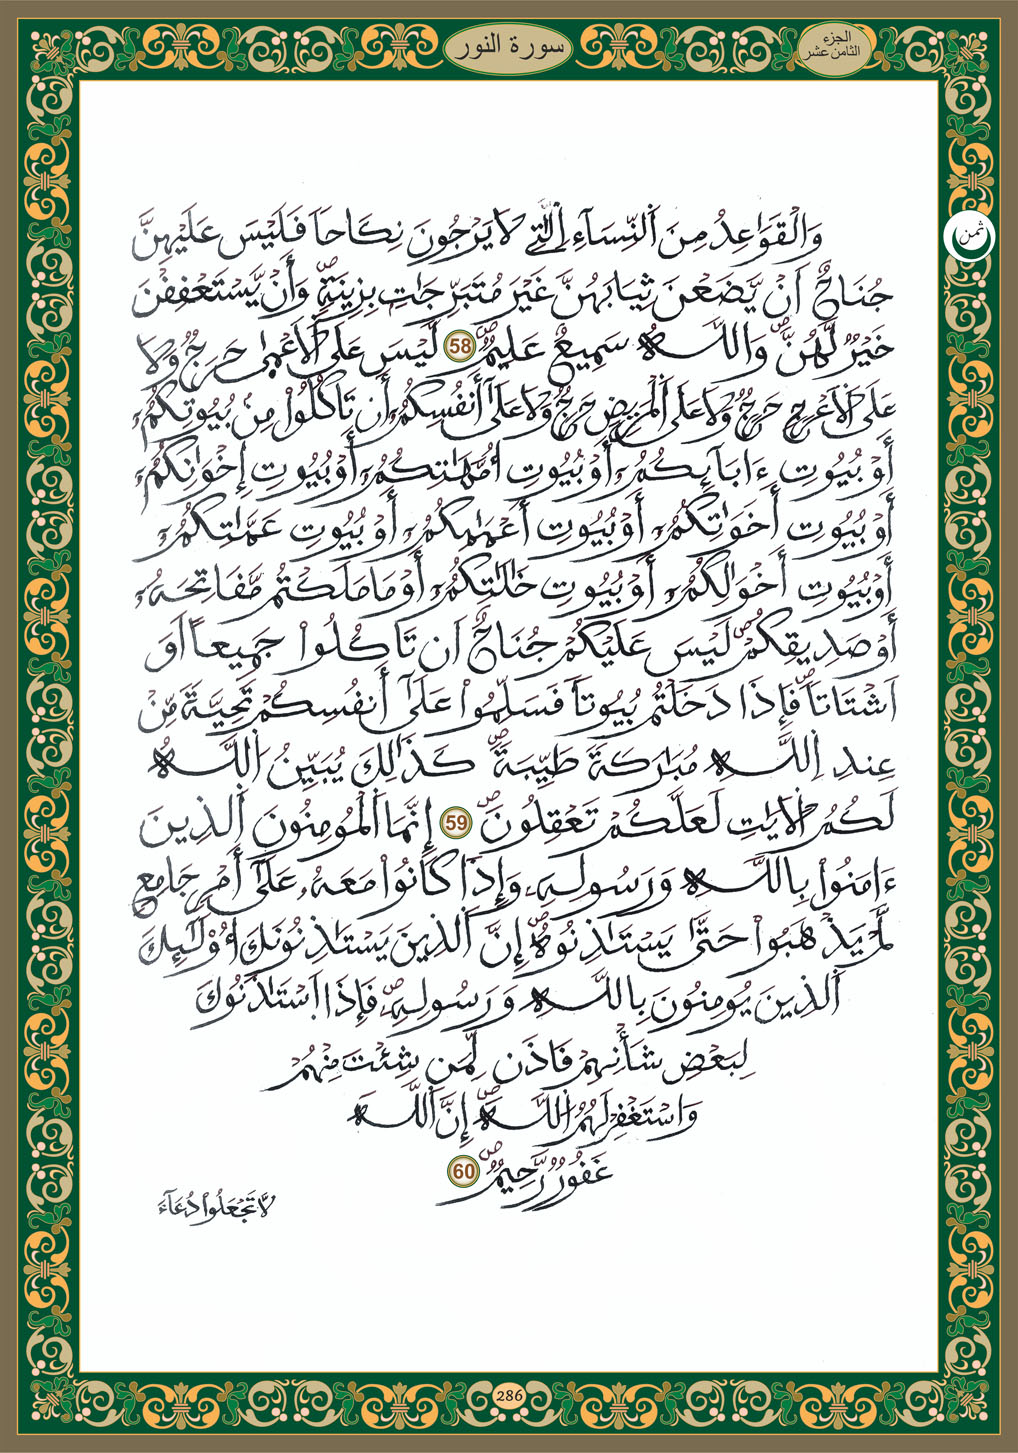 سورة النور
الجزء
الثامن عشر
ثمن
وَالْقَوَاعِدُ مِنَ اَلنِّسَآءِ اِلَّٰتِے لَا يَرْجُونَ نِكَاحاً فَلَيْسَ عَلَيْهِنَّ
جُنَاحٌ اَنْ يَّضَعْنَ ثِيَابَهُنَّ غَيْرَ مُتَبَرِّجَٰتِۢ بِزِينَةٍۖ وَأَنْ يَّسْتَعْفِفْنَ
خَيْرٌ لَّهُنَّۖ وَاللَّهُ سَمِيعٌ عَلِيمٌۖ 58 لَّيْسَ عَلَى اَلَاعْمٰ۪ى حَرَجٌ وَلَا
عَلَى اَلَاعْرَجِ حَرَجٌ وَلَا عَلَى اَلْمَرِيضِ حَرَجٌ وَلَا عَلَىٰٓ أَنفُسِكُمُۥٓ أَن تَاكُلُواْ مِنۢ بُيُوتِكُمُۥٓ
أَوْ بُيُوتِ ءَابَآئِكُمُۥٓ أَوْ بُيُوتِ أُمَّهَٰتِكُمُۥٓ أَوْ بُيُوتِ إِخْوَٰنِكُمُۥٓ
أَوْ بُيُوتِ أَخَوَٰتِكُمُۥٓ أَوْ بُيُوتِ أَعْمَٰمِكُمُۥٓ أَوْ بُيُوتِ عَمَّٰتِكُمُۥٓ
أَوْ بُيُوتِ أَخْوَٰلِكُمُۥٓ أَوْ بُيُوتِ خَٰلَٰتِكُمُۥٓ أَوْ مَا مَلَكْتُم مَّفَاتِحَهُۥٓ
أَوْ صَدِيقِكُمْۖ لَيْسَ عَلَيْكُمْ جُنَاحٌ اَن تَاكُلُواْ جَمِيعاً اَوَ
اَشْتَاتاًۖ فَإِذَا دَخَلْتُم بُيُوتاً فَسَلِّمُواْ عَلَىٰٓ أَنفُسِكُمْ تَحِيَّةً مِّنْ
عِندِ اِللَّهِ مُبَٰرَكَةً طَيِّبَةًۖ كَذَٰلِكَ يُبَيِّنُ اُللَّهُ
لَكُمُ اُلَايَٰتِ لَعَلَّكُمْ تَعْقِلُونَۖ 59 إِنَّمَا اَلْمُومِنُونَ اَلذِينَ
ءَامَنُواْ بِاللَّهِ وَرَسُولِهِۦ وَإِذَا كَانُواْ مَعَهُۥ عَلَىٰٓ أَمْرٖ جَامِعٖ
لَّمْ يَذْهَبُواْ حَتَّىٰ يَسْتَٰذِنُوهُۖ إِنَّ اَلذِينَ يَسْتَٰذِنُونَكَ أُوْلَٰٓئِكَ
اَلذِينَ يُومِنُونَ بِاللَّهِ وَرَسُولِهِۦۖ فَإِذَا اَسْتَٰذَنُوكَ
لِبَعْضِ شَأْنِهِمْ فَاذَن لِّمَن شِئْتَ مِنْهُمْ
وَاسْتَغْفِرْ لَهُمُ اُللَّهَۖ إِنَّ اَللَّهَ
غَفُورٌ رَّحِيمٌۖ 60
لَّا تَجْعَلُواْ دُعَآءَ
286